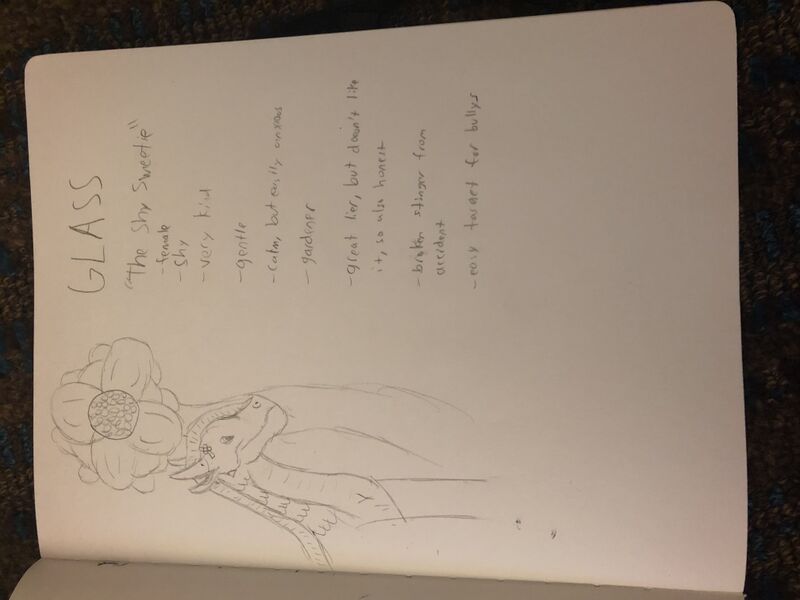 GLASS
"The Shy Sweetie"
- female
- shy
- very kind
- gentle
- calm, but easily anxious
- gardiner
- great lier, but doesn't like
it, so also honest
- broken stinger from
accident
- easy target for bullys